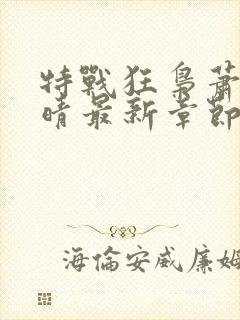 特戰狂梟蕭
晴最新章節
海倫安威廉姆